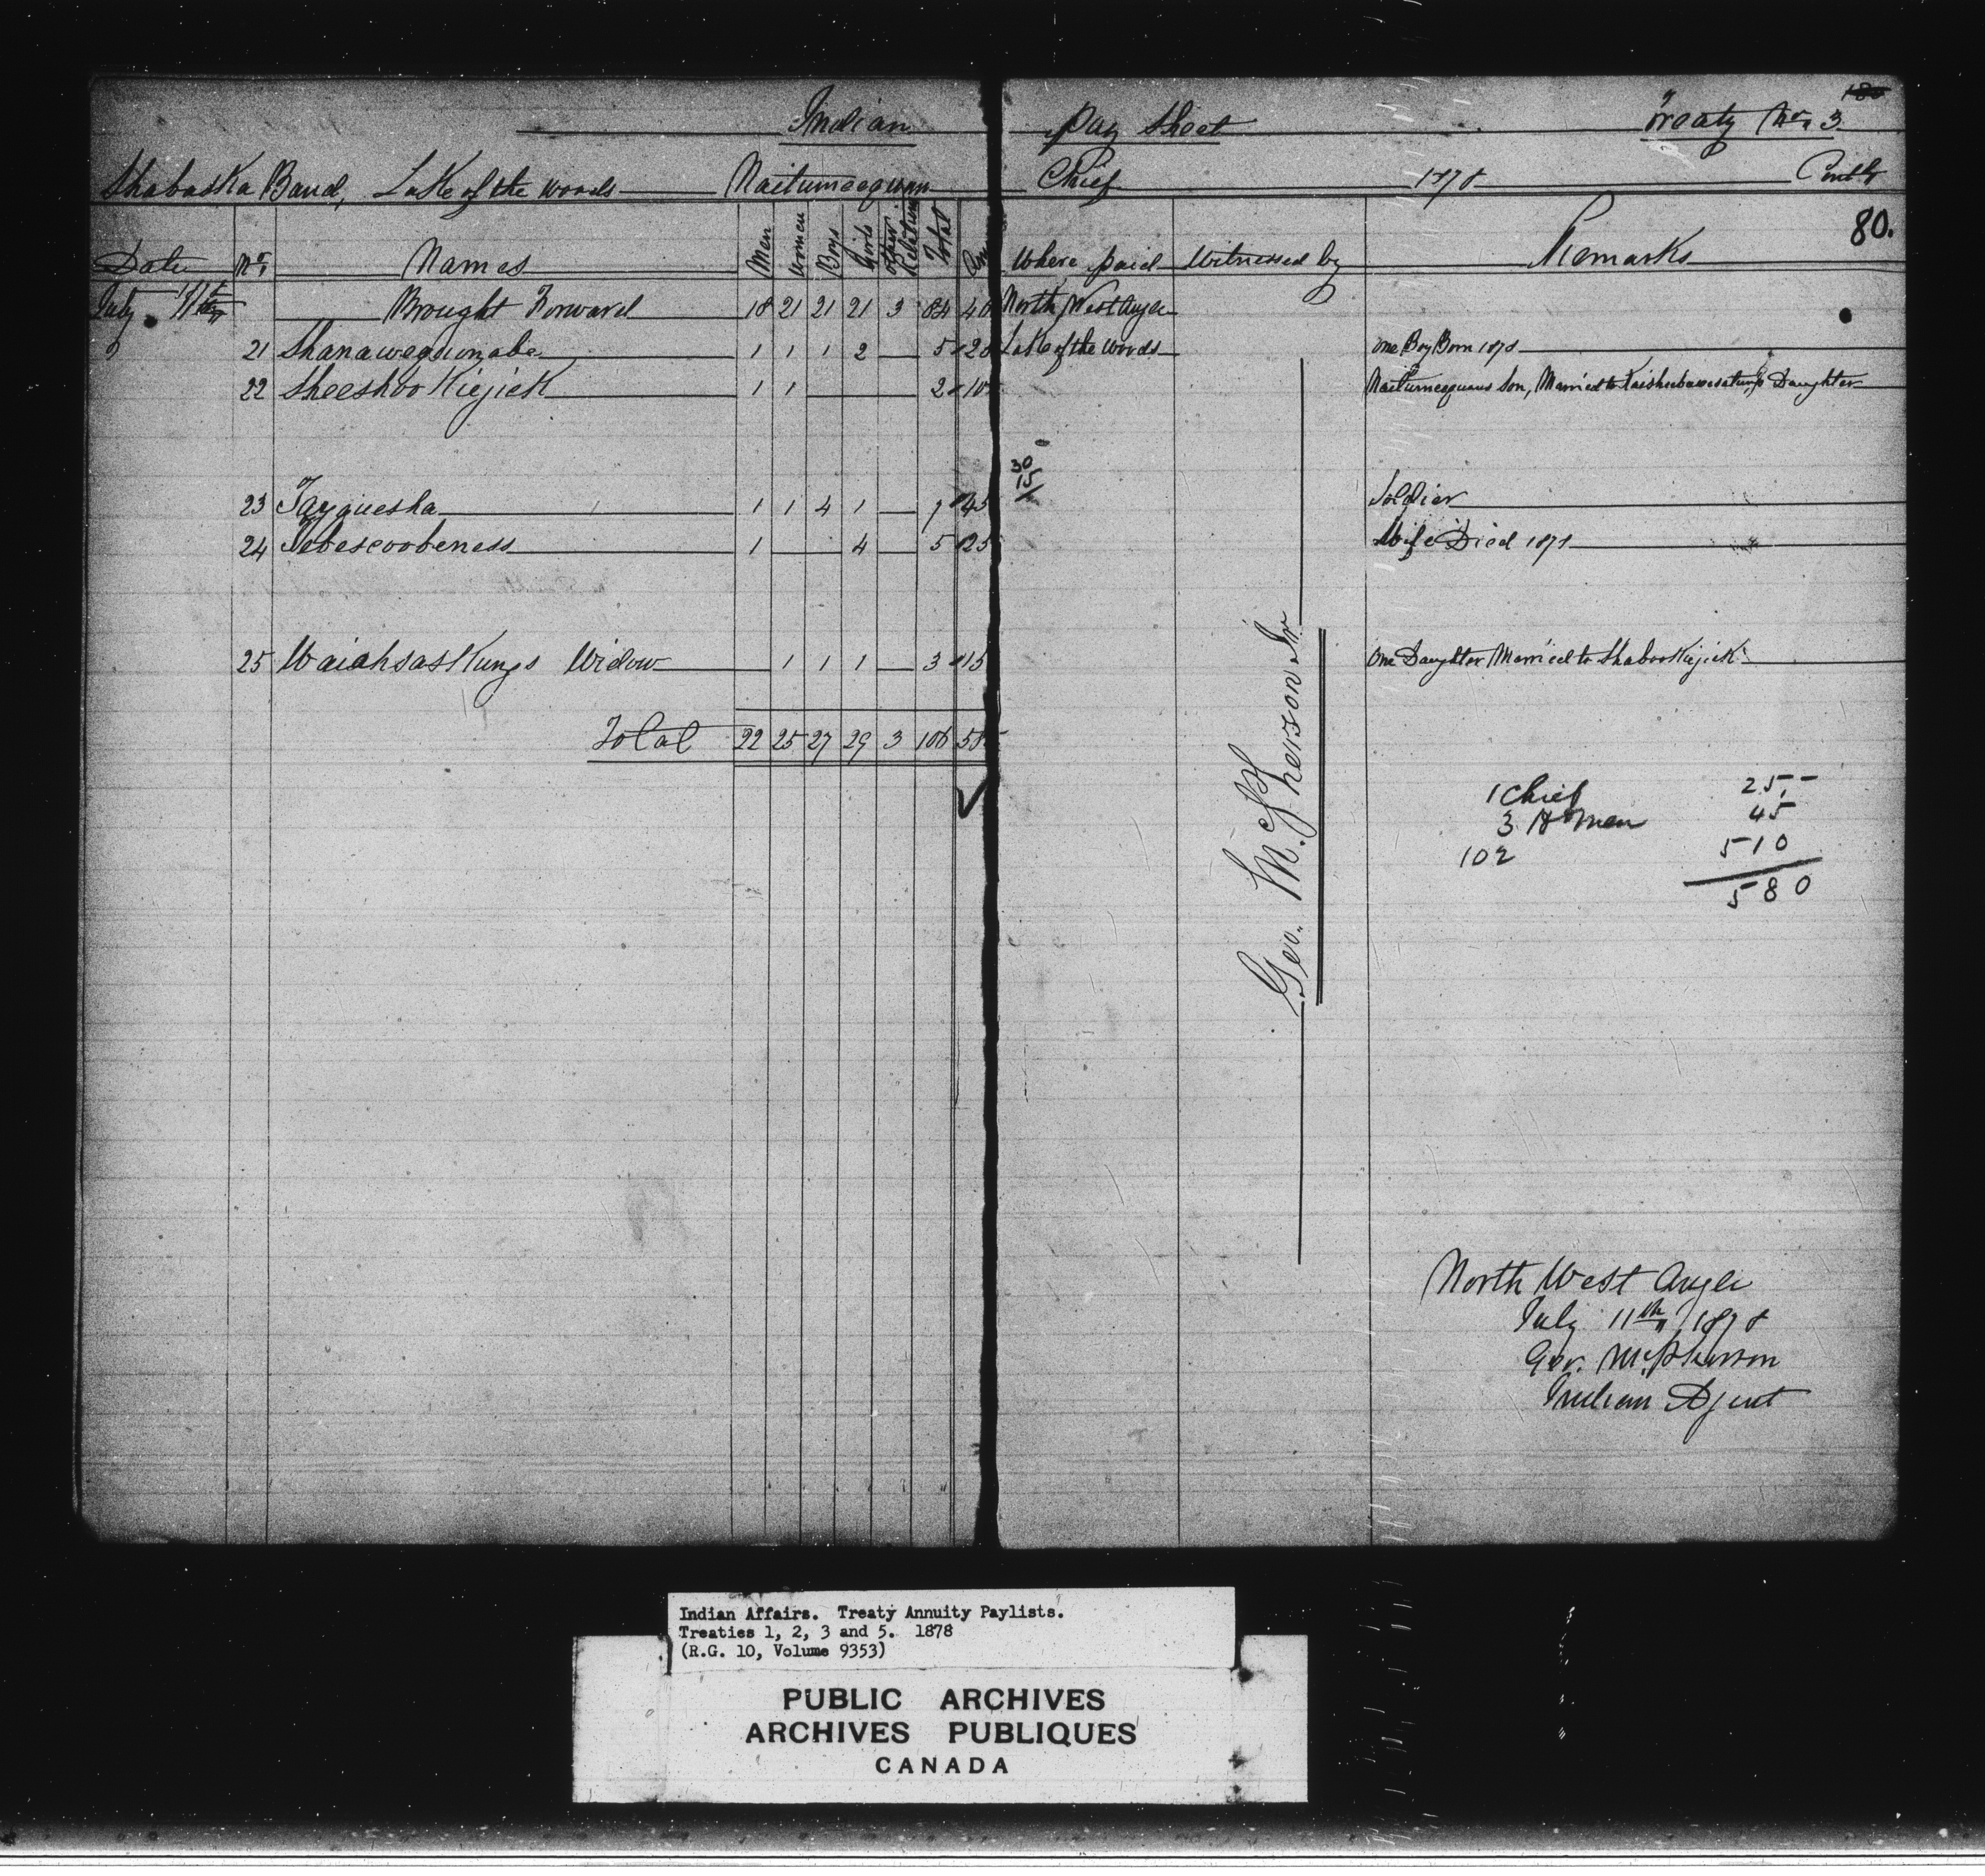 Indian Pay Sheet Treaty No. 3
Shabaska Band, Lake of the Woods Naitumeequan Chief 1878 Contd
80.
Date No. Names Men Women Boys Girls Other Relatives Total Where paid Witnessed by Remarks
July 11th Brought Forward 18 21 21 21 3 84 North West Angle
21 Shanawequnabe 1 1 1 2 5 Lake of the Woods One Boy Born 1878
22 Sheeshoo Kiejick 1 1 2 10 Naitumeequans Son, Married to Daughter
30
15
23 Tayguesha 1 1 4 1 7 45 Soldier
24 Tebescoobeness 1 4 5 25 Wife Died 1878
25 Waiahsaskungs Widow 1 1 1 3 15 One Daughter Married to Shabookiejick
Total 22 25 27 29 3 106
Geo. McPherson Jr.
1 Chief 25 -
3 H Men 45
102 510
580
North West Angle
July 11th 1878
Geo. McPherson
Indian Agent
Indian Affairs. Treaty Annuity Paylists.
Treaties 1, 2, 3 and 5. 1878
(R.G. 10, Volume 9353)
PUBLIC ARCHIVES
ARCHIVES PUBLIQUES
CANADA